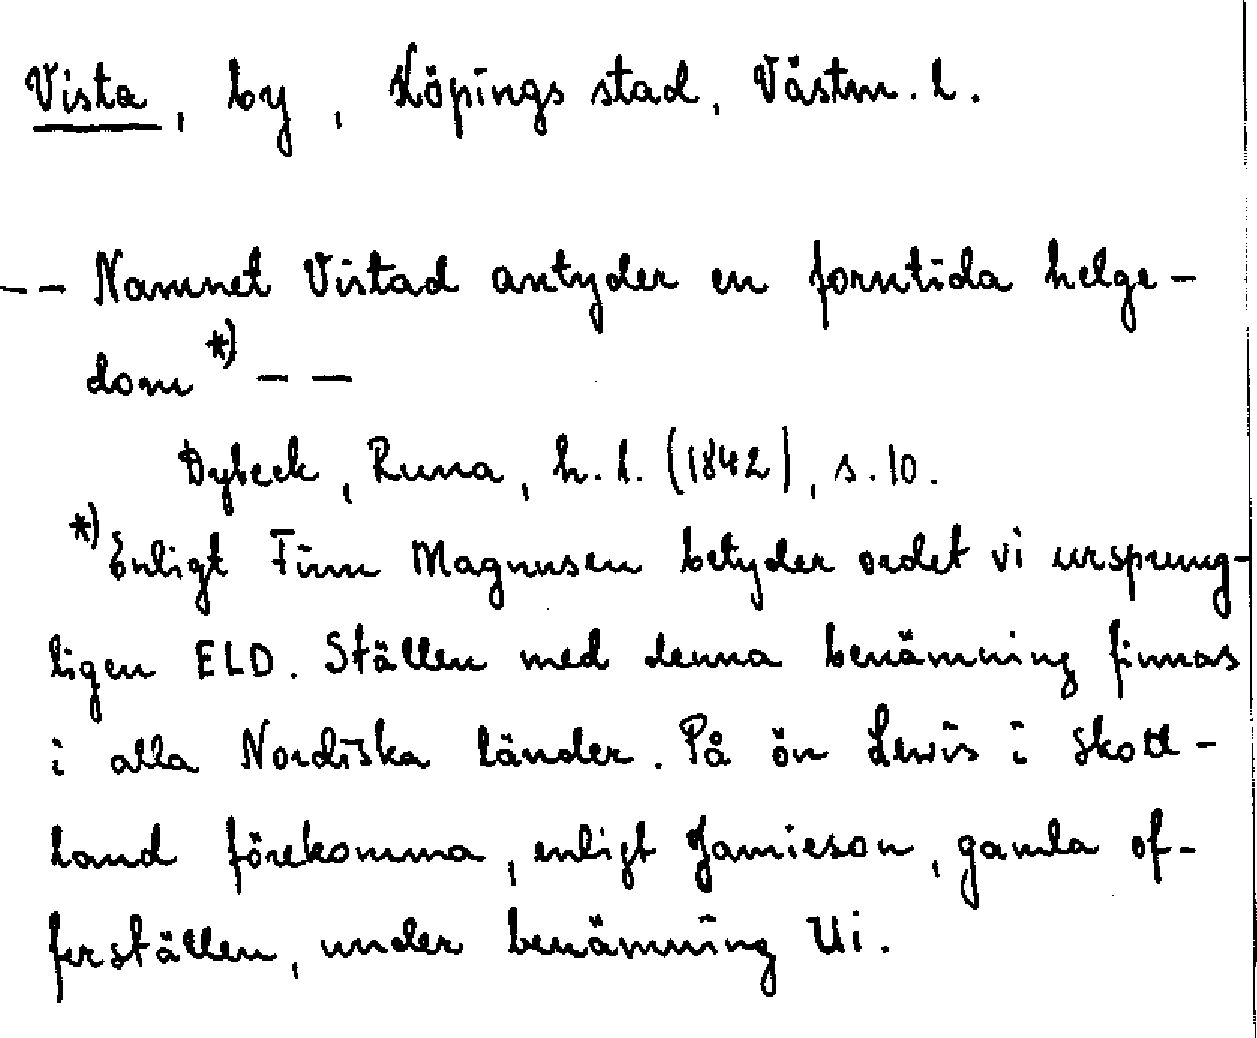 Vista, by, Köpings stad, Västm. l.
-- Namnet Vistad antyder en forntida helge-
dom *) --
Dybeck, Runa, h. 1. (1842), s. 10.
*) Enligt Finn Magnusen betyder ordet vi ursprung-
ligen ELD. Ställen med denna benämning finnas
i alla Nordiska länder. På ön Lewis i Skott-
land förekomma, enligt Jamieson, gamla of-
ferställen, under benämning Ui.